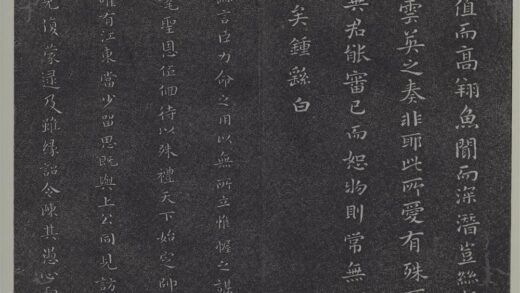 值而高翔魚聞而深潛豈絲
雲英之奏非耶此所愛有殊所
無君能審己而恕物則常無
矣鍾繇白
繇言臣力命之用以無所立惟幄之謀
聖恩低佪待以殊禮天下始定帥
唯有江東當少留思既與上公同見訪
復蒙逮及雖緣詔令陳其愚心